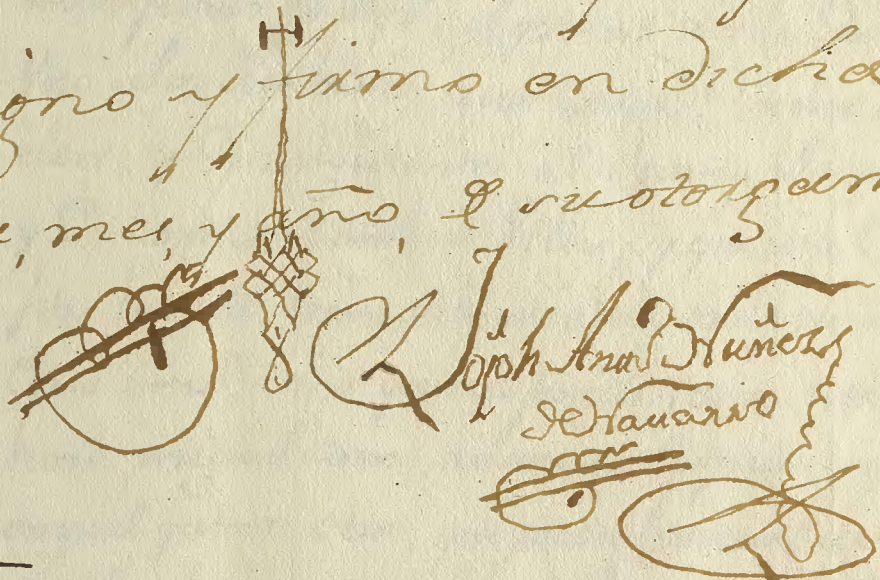 gno y firmo en dicha
, mes, y año, de su otorgam
Joseph Anttº Nuñez
de Navarro